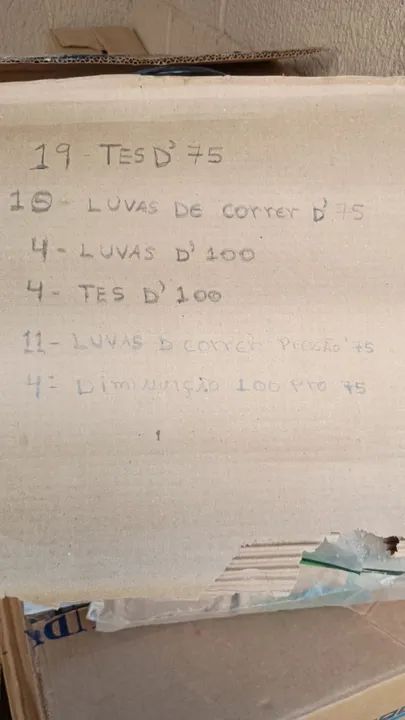 19 - TES D' 75
10 - LUVAS DE correr D' 75
4 - LUVAS D' 100
4 - TES D' 100
11 - LUVAS D correr Pressão 75
4 - Diminuição 100 pro 75